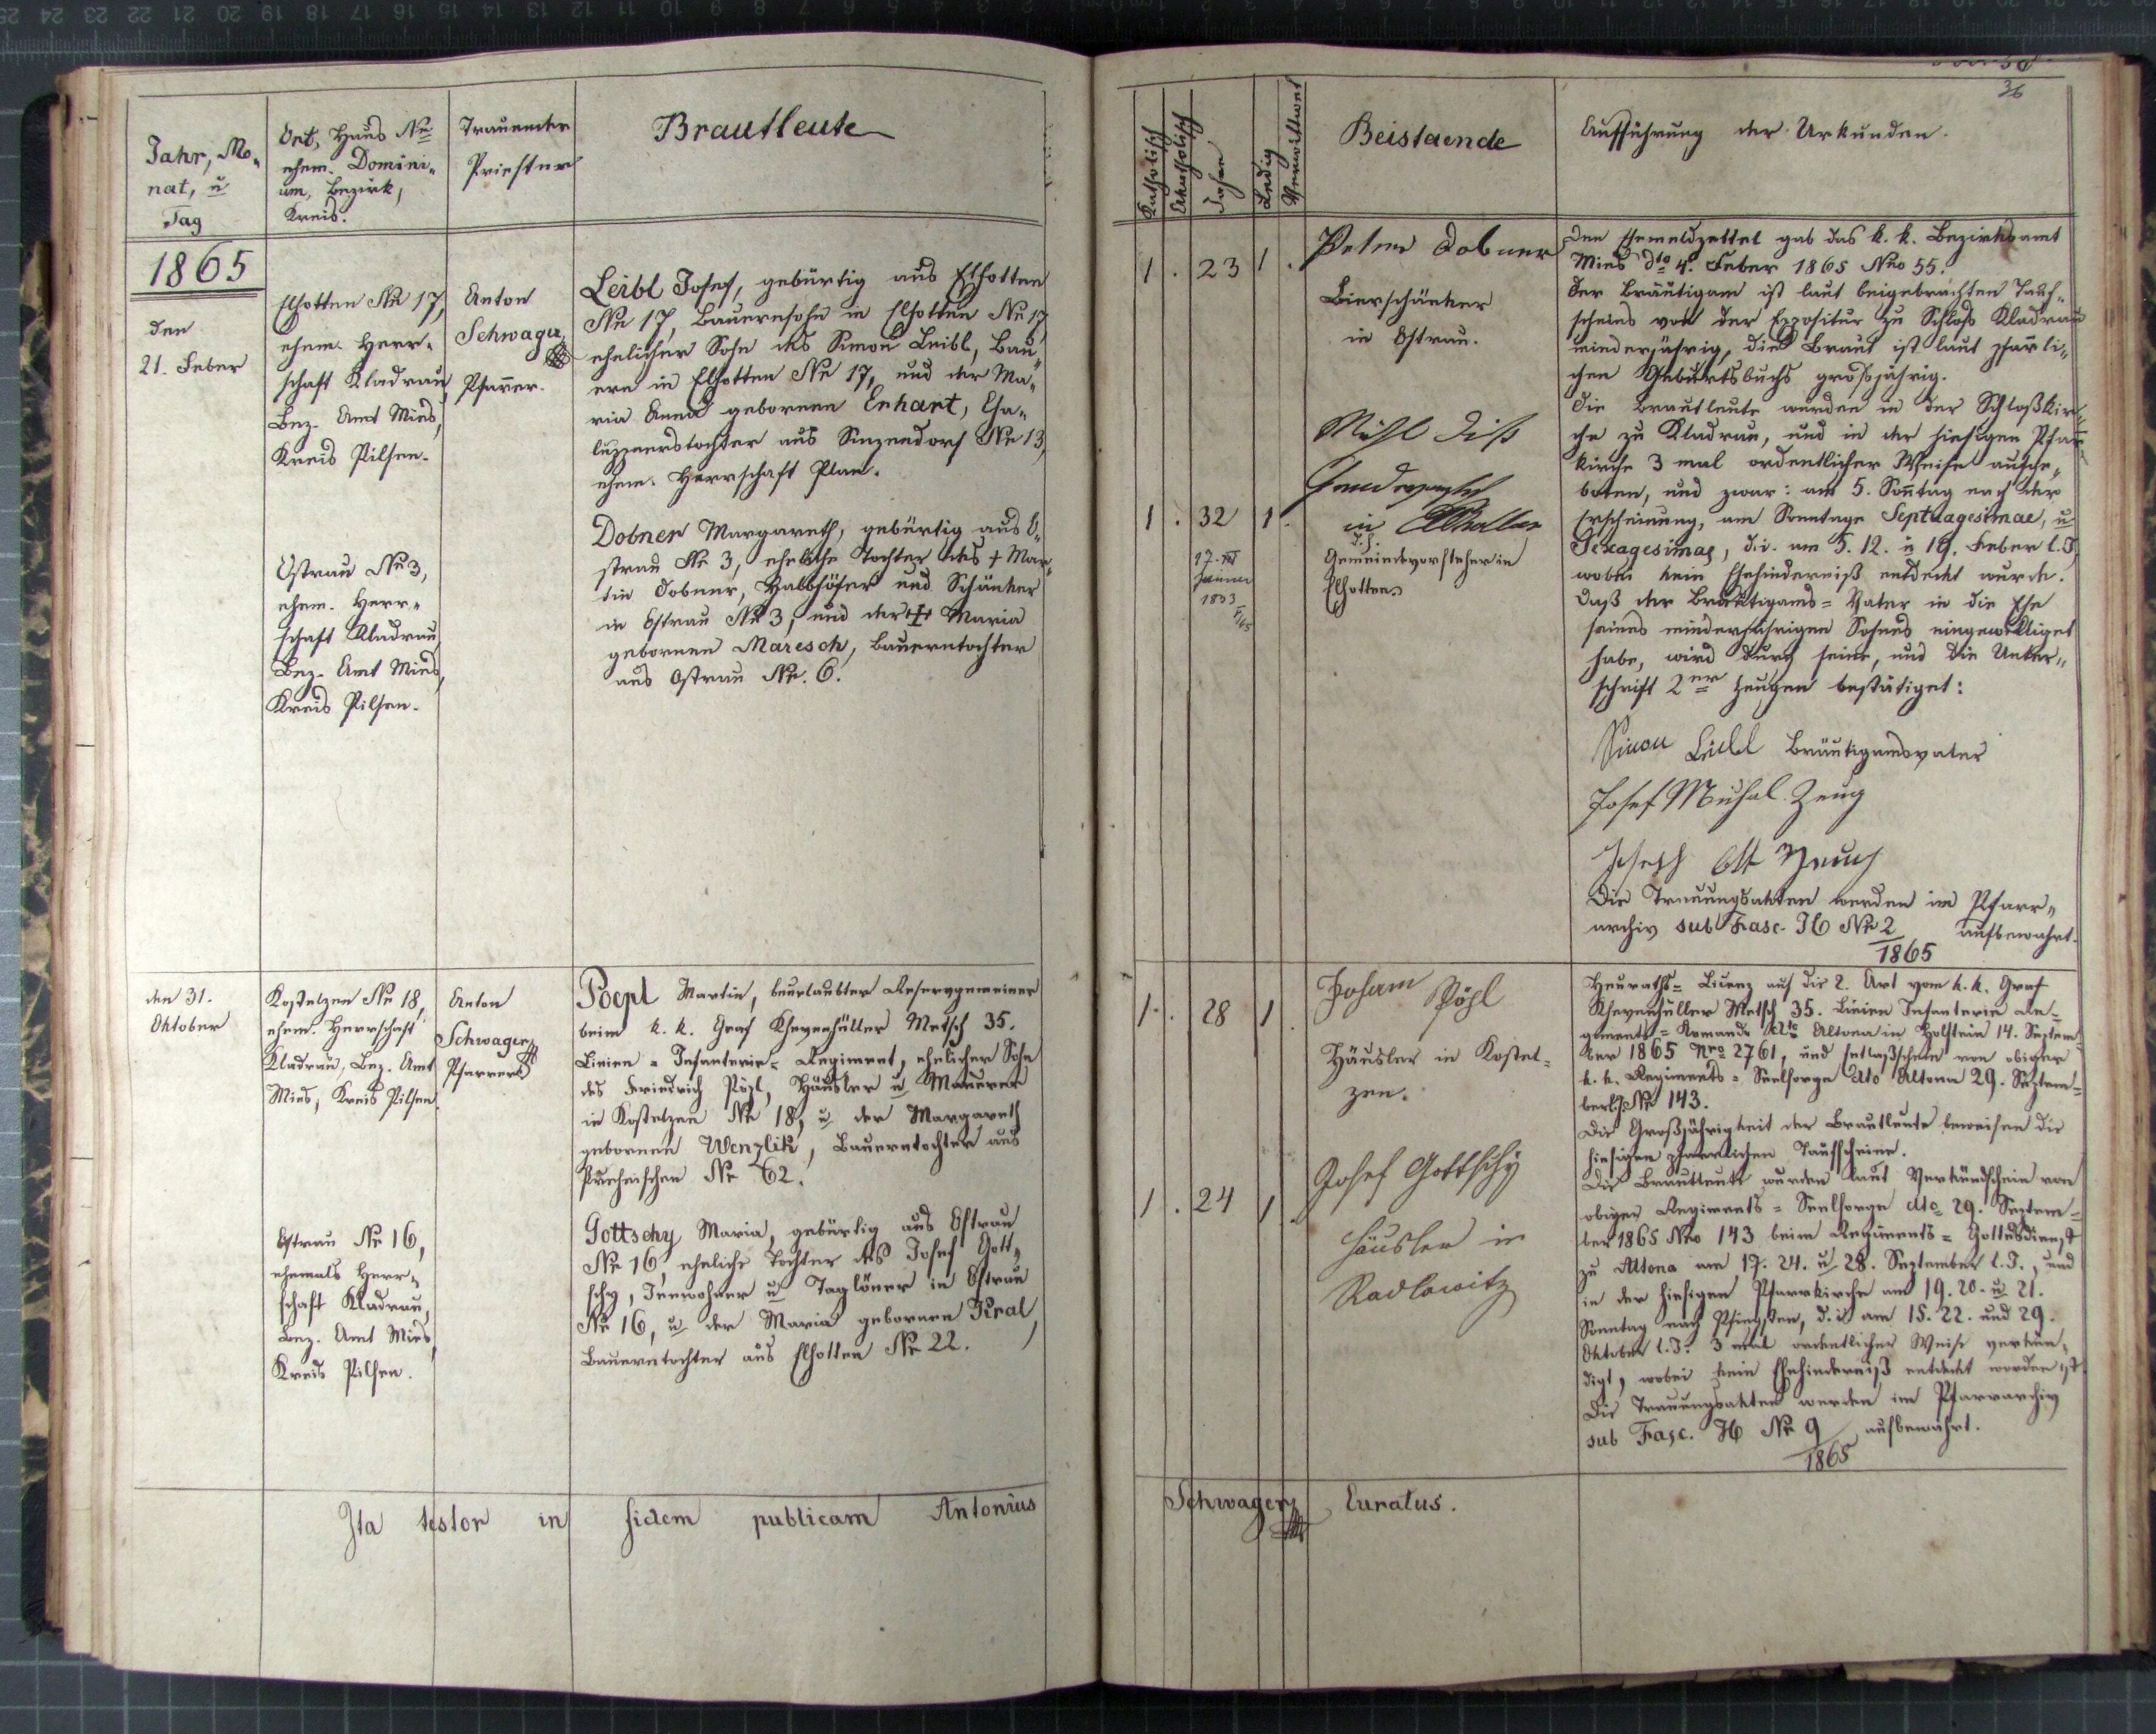 36
Jahr, Mo-
nat, u
Tag
Ort, Haus Nr
ehem. Domini-
um, Bezirk,
Kreis.
Trauender
Priester
Brautleute
Katholisch
Akatholisch
Jahre
Ledig
Verwittwet
Beistaende
Aufführung der Urkunden.
1865
den
21. Feber
Elhotten Nr 17,
ehem. Herr-
schaft Kladrau,
Bez. Amt Mies,
Kreis Pilsen.
Anton
Schwager,
Pfarrer.
Leibl Josef, gebürtig aus Elhotten
Nr 17, Bauernsohn in Elhotten Nr 17
ehelicher Sohn des Simon Leibl, Bau-
ern in Elhotten Nr 17, und der Ma-
ria Anna gebornen Enhart, Cha-
luppnerstochter aus Sinzendorf Nr 13,
ehem. Herrschaft Plan.
Ostrau Nr 3,
ehem. Herr-
schaft Kladrau,
Bez. Amt Mies,
Kreis Pilsen.
Dobner Margareth, gebürtig aus O-
strau Nr 3, eheliche Tochter des + Mar-
tin Dobner, Halbhöfer und Schänker
in Ostrau Nr 3, und der + Maria
gebornen Maresch, Bauerntochter
aus Ostrau Nr. 6.
1 . 23 1 .
Peter Dobner
Bierschänker
in Ostrau.
1 . 32 1 .
17.
Jänner
1833
in
d. h.
Gemeindevorsteher in
Elhotten
Den Ehemeldzettel gab das k. k. Bezirksamt
Mies dto 4. Feber 1865 Nro 55.
Der Bräutigam ist laut beigebrachten Tauf-
scheines von der Expositur zu Schloß Kladrau
minderjährig, die Braut ist laut pfarrli-
chen Geburtsbuchs großjährig.
Die Brautleute wurden in der Schloßkir-
che zu Kladrau, und in der hiesigen Pfarr-
kirche 3 mal ordentlicher Weise aufge-
boten, und zwar: am 5. Sonntag nach der
Erscheinung, am Sonntage Septuagesimae, u
Sexagesimae, d. i. am 5. 12. u 19. Feber l. J.
wobei kein Ehehinderniß entdeckt wurde.
Daß der Bräutigams-Vater in die Ehe
seines minderjährigen Sohnes eingewilliget
habe, wird durch seine, und die Unter-
schrift 2er Zeugen bestätiget:
Simon Leibl Bräutigamsvater
Josef Muhal Zeug
Joseph Ott Zeuch
Die Trauungsakten werden im Pfarr-
archiv sub Fasc. H Nr 2 aufbewahrt.
1865
den 31.
Oktober
Kostelzen Nr 18,
ehem. Herrschaft
Kladrau, Bez. Amt
Mies, Kreis Pilsen.
Anton
Schwager,
Pfarrer
Poepl Martin, beurlaubter Reservgemeiner
beim k. k. Graf Khevenhüller Metsch 35.
Linien-Infanterie-Regiment, ehelicher Sohn
des Friedrich Pöpl, Häusler u Maurer
in Kostelzen Nr 18, u der Margareth
gebornen Wenzlik, Bauerntochter aus
Nr 62.
Ostrau Nr 16,
ehemals Herr-
schaft Kladrau,
Bez. Amt Mies,
Kreis Pilsen.
Gottschy Maria, gebürtig aus Ostrau
Nr 16, eheliche Tochter des Josef Gott-
schy, Innwohner u Taglöner in Ostrau
Nr 16, u der Maria gebornen Kral,
Bauerntochter aus Elhotten Nr 22.
1 . 28 1 .
Johann Pöpl
Häusler in Kostel-
zen.
1 . 24 1 .
Josef Gottschy
Häusler in
Radlowitz
Heuraths-Licenz auf die 2. Art vom k. k. Graf
Khevenhüller Metsch 35. Linien Infanterie Re-
giments-Komando dto Altona in Holstein 14. Septem-
ber 1865 Nro 2761, und Entlaßschein von obiger
k. k. Regiments-Seelsorge dto Altona 29. Septem-
ber l. J. Nr 143.
Die Großjährigkeit der Brautleute beweisen die
hiesigen pfarrlichen Taufscheine.
Die Brautleute wurden laut Verkündschein von
obiger Regiments-Seelsorge dto 29. Septem-
ber 1865 Nro 143 beim Regiments-Gottesdienst
zu Altona am 17. 24. u 28. September l. J., und
in der hiesigen Pfarrkirche am 19. 20. u 21.
Sonntag nach Pfingsten, d. i. am 15. 22. und 29.
Oktober l. J. 3 mal ordentlicher Weise verkün-
digt, wobei kein Ehehinderniß entdeckt worden ist.
Die Trauungsakten werden im Pfarrarchiv
sub Fasc. H Nr 9 aufbewahrt.
1865
Ita testor in fidem publicam Antonius Schwager, Curatus.